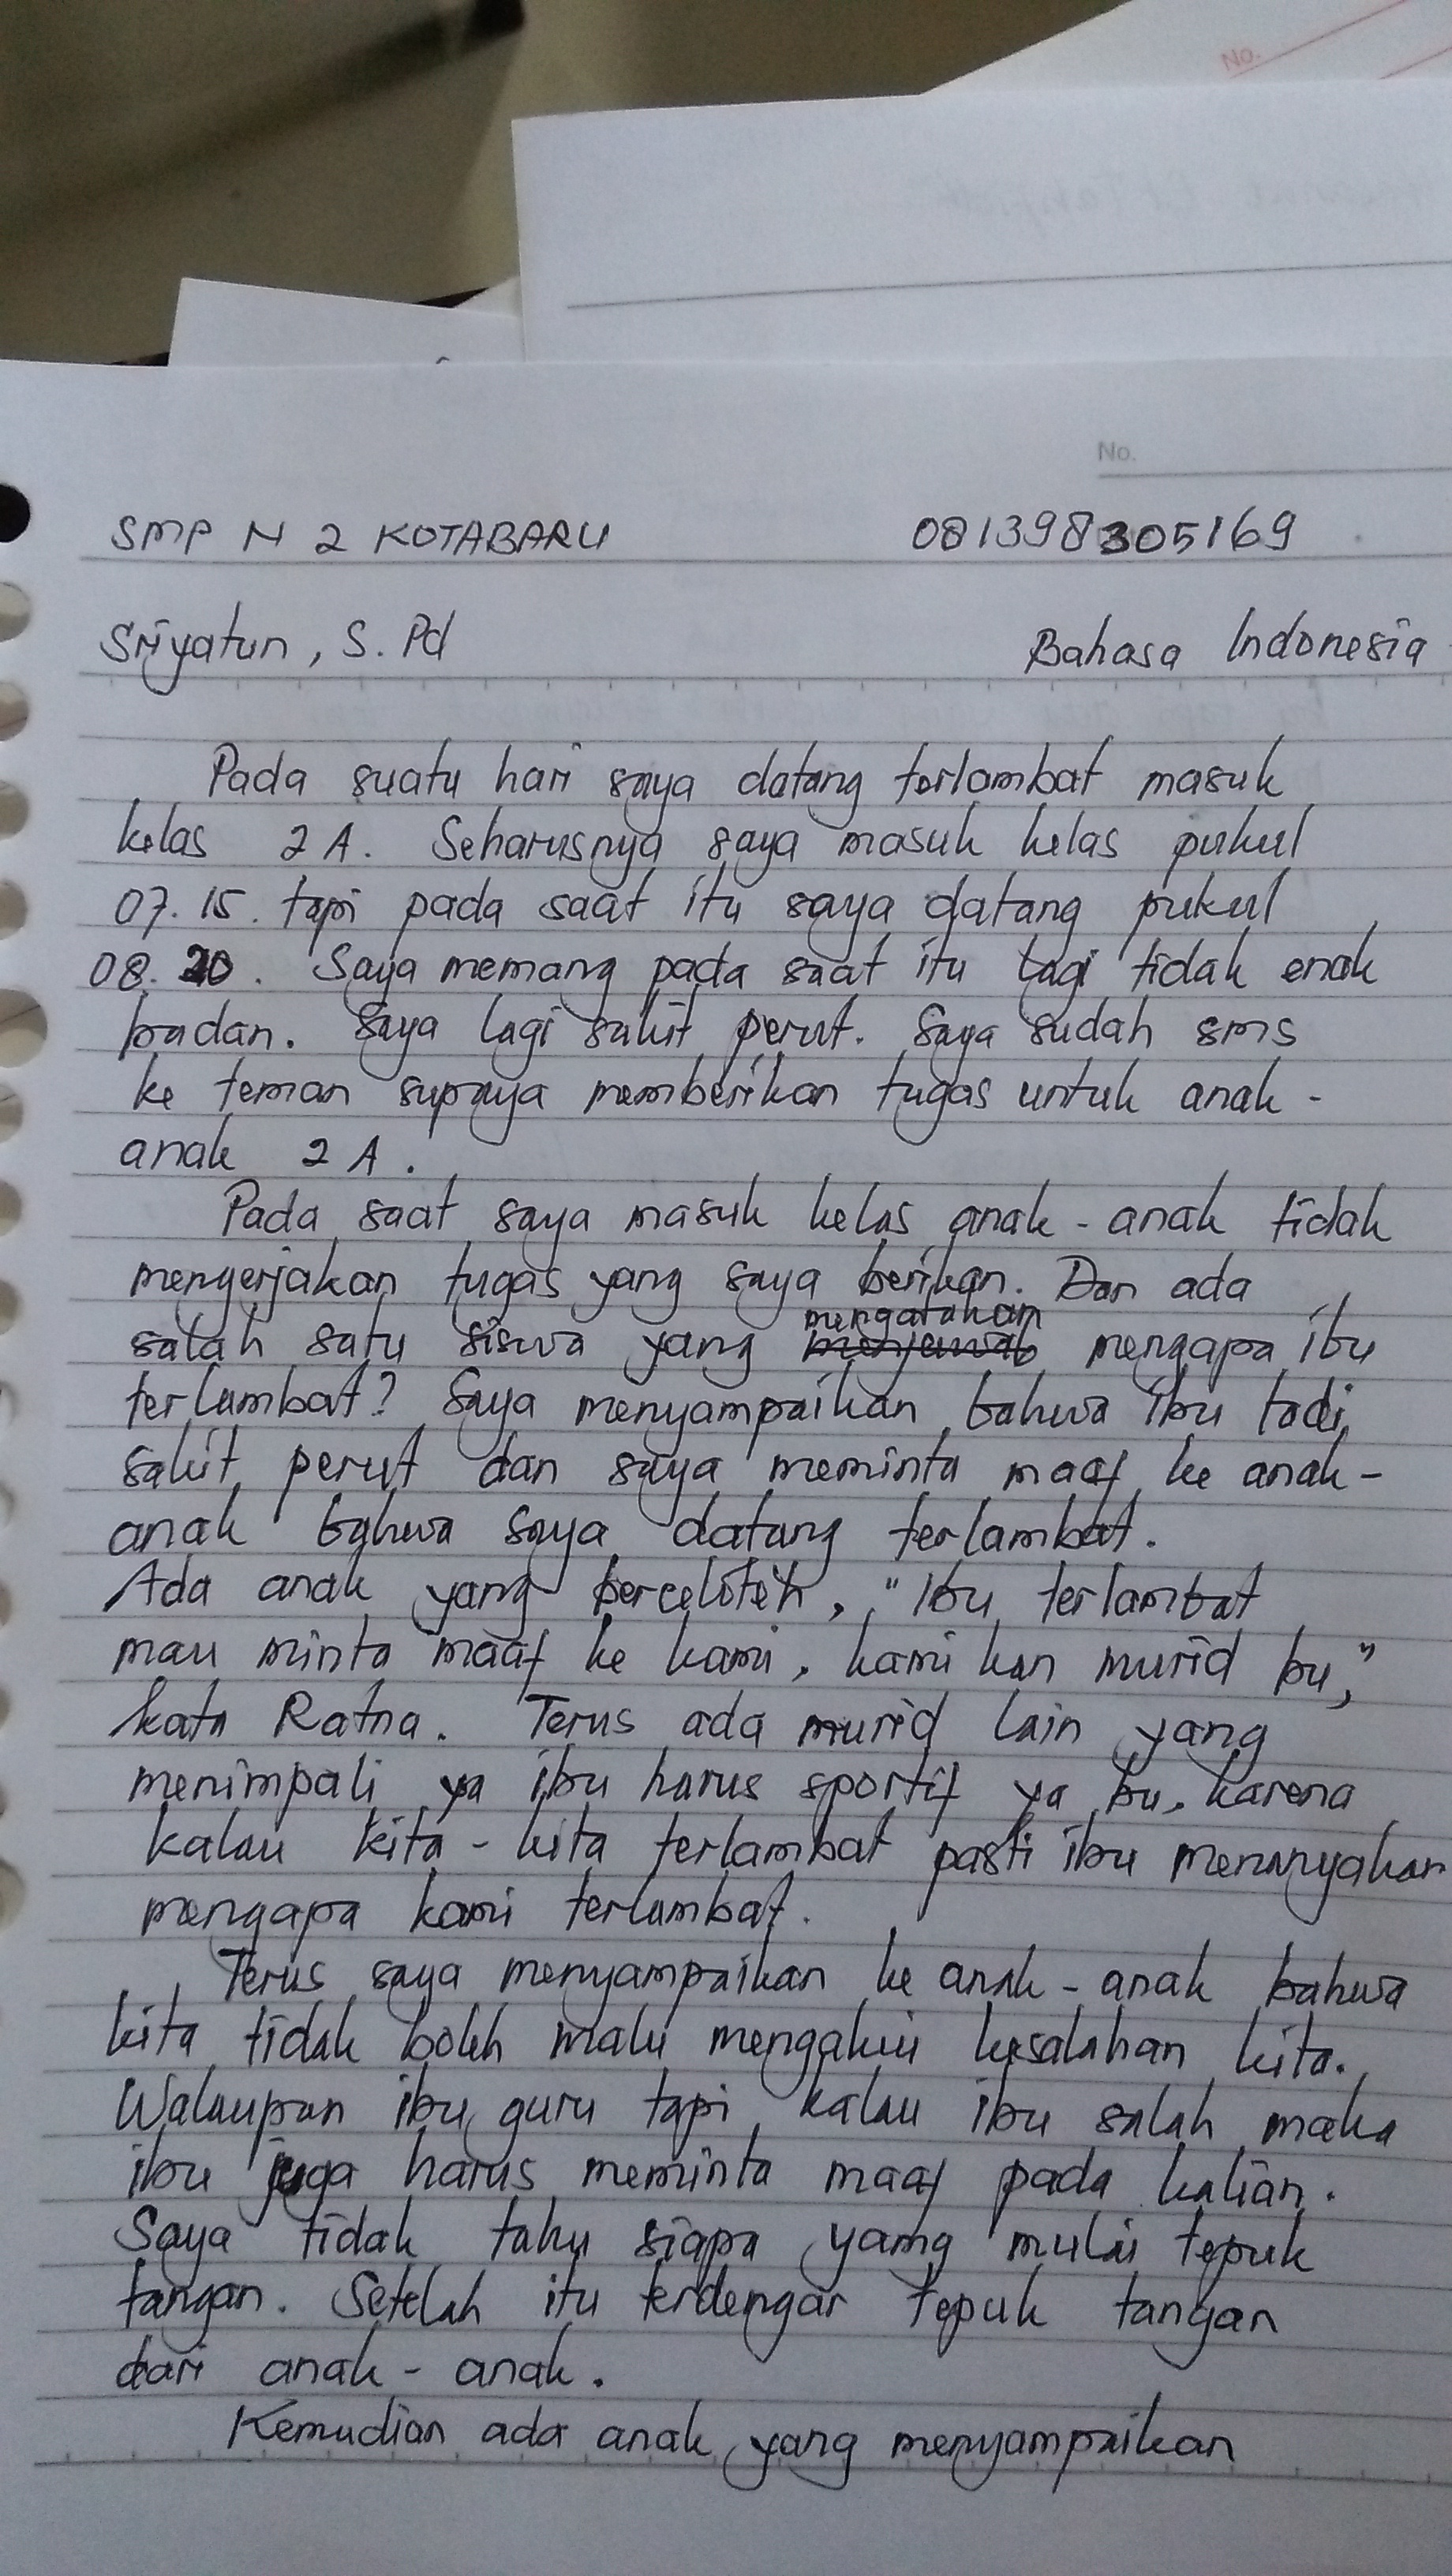 No.
No.
SMP N 2 KOTABARU 081398305169
Sriyatun, S. Pd Bahasa Indonesia
Pada suatu hari saya datang terlambat masuk
kelas 2 A. Seharusnya saya masuk kelas pukul
07.15. tapi pada saat itu saya datang pukul
08.20. Saya memang pada saat itu lagi tidak enak
badan. Saya lagi sakit perut. Saya sudah sms
ke teman supaya memberikan tugas untuk anak -
anak 2 A.
Pada saat saya masuk kelas anak - anak tidak
mengerjakan tugas yang saya berikan. Dan ada
salah satu siswa yang mengatakan mengapa ibu
terlambat? Saya menyampaikan bahwa ibu tadi
sakit perut dan saya meminta maaf ke anak -
anak bahwa saya datang terlambat.
Ada anak yang berceloteh, "Ibu terlambat
mau minta maaf ke kami, kami kan murid bu,"
kata Ratna. Terus ada murid lain yang
menimpali ya ibu harus sportif ya bu, karena
kalau kita - kita terlambat pasti ibu menanyakan
mengapa kami terlambat.
Terus saya menyampaikan ke anak - anak bahwa
kita tidak boleh malu mengakui kesalahan kita.
Walaupun ibu guru tapi kalau ibu salah maka
ibu juga harus meminta maaf pada kalian.
Saya tidak tahu siapa yang mulai tepuk
tangan. Setelah itu terdengar tepuk tangan
dari anak - anak.
Kemudian ada anak yang menyampaikan